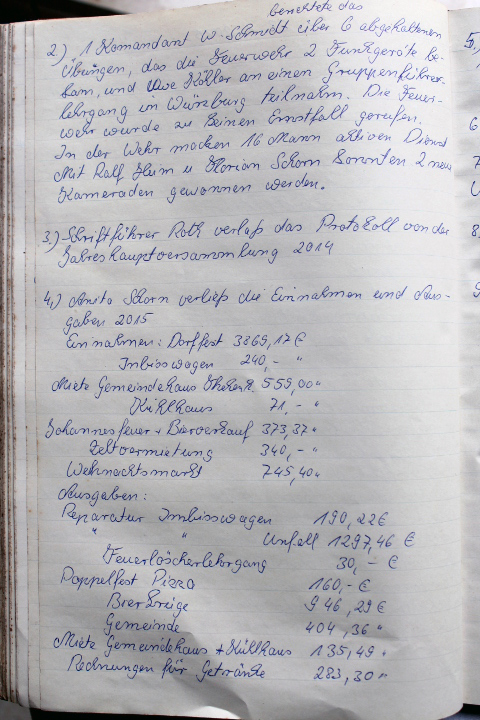 berichtete das
2) 1 Komandant W. Schmidt über 6 abgehaltenen
Übungen, das die Feuerwehr 2 Funkgeräte be-
kam, und Uwe Köhler an einen Gruppenführer-
lehrgang in Würzburg teilnahm. Die Feuer-
wehr wurde zu keinen Ernstfall gerufen.
In der Wehr machen 16 Mann aktiven Dienst
Mit Ralf Hum u Florian Schorn konnten 2 neue
Kameraden gewonnen werden.
3.) Schriftführer Roth verlaß das Protokoll von der
Jahreshauptversammlung 2014
4.) Anita Schorn verließ die Einnahmen und Aus-
gaben 2015
Einnahmen: Dorffest 3869,17 €
Imbisswagen 240,- "
Miete Gemeindehaus 559,00 "
Kühlhaus 71,- "
Johannesfeuer + Bierverkauf 373,37 "
Zeltvermietung 340,- "
Weihnachtsmarkt 745,40 "
Ausgaben:
Reparatur Imbisswagen 190,22 €
" " Unfall 1297,46 €
Feuerlöscherlehrgang 30,- €
Pappelfest Pizza 160,- €
Bier Zreige 946,29 €
Gemeinde 404,36 "
Miete Gemeindehaus + Kühlhaus 135,49 "
Rechnungen für Getränke 283,30 "
5.
6
7
8
9